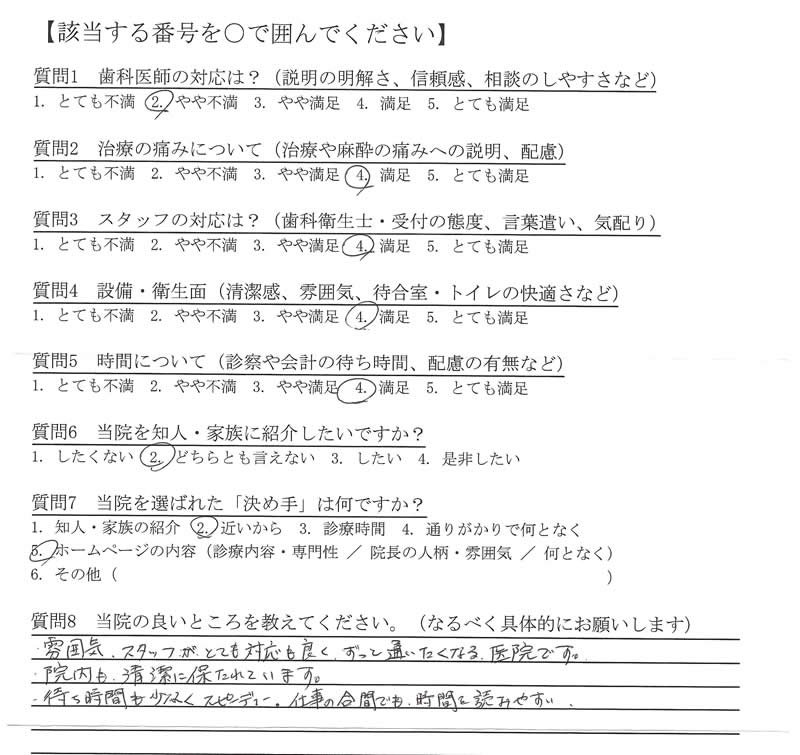 【該当する番号を〇で囲んでください】
質問1　歯科医師の対応は？（説明の明解さ、信頼感、相談のしやすさなど）
1. とても不満 2. やや不満 3. やや満足 4. 満足 5. とても満足
質問2　治療の痛みについて（治療や麻酔の痛みへの説明、配慮）
1. とても不満 2. やや不満 3. やや満足 4. 満足 5. とても満足
質問3　スタッフの対応は？（歯科衛生士・受付の態度、言葉遣い、気配り）
1. とても不満 2. やや不満 3. やや満足 4. 満足 5. とても満足
質問4　設備・衛生面（清潔感、雰囲気、待合室・トイレの快適さなど）
1. とても不満 2. やや不満 3. やや満足 4. 満足 5. とても満足
質問5　時間について（診察や会計の待ち時間、配慮の有無など）
1. とても不満 2. やや不満 3. やや満足 4. 満足 5. とても満足
質問6　当院を知人・家族に紹介したいですか？
1. したくない 2. どちらとも言えない 3. したい 4. 是非したい
質問7　当院を選ばれた「決め手」は何ですか？
1. 知人・家族の紹介 2. 近いから 3. 診療時間 4. 通りがかりで何となく
5. ホームページの内容（診療内容・専門性 ／ 院長の人柄・雰囲気 ／ 何となく）
6. その他（　　　　　）
質問8　当院の良いところを教えてください。（なるべく具体的にお願いします）
・雰囲気、スタッフがとても対応も良く、ずっと通いたくなる、医院です。
・院内も、清潔に保たれています。
・待ち時間も少なくスピーディー。仕事の合間でも、時間を読みやすい、